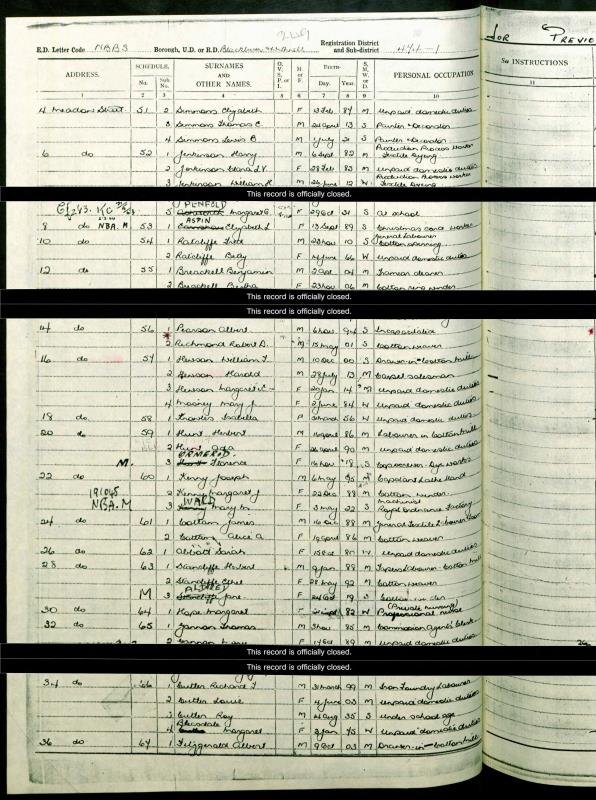 249
FOR PREVIO
E.D. Letter Code NBBS Borough, U.D. or R.D. Registration District and Sub-district 474-1
See INSTRUCTIONS
ADDRESS. SCHEDULE. No. Sub. No. SURNAMES AND OTHER NAMES. O. V. S. P. or I. M. or F. BIRTH— Day. Year. S. M. W. or D. PERSONAL OCCUPATION.
1 2 3 4 5 6 7 8 9 10 11
4 Meadow Street 51 2 Simmons Elizabeth F 13 Feb 87 M Unpaid domestic duties
3 Simmons Thomas C. M 13 S Painter & Decorator
4 Simmons Lewis B M 1 July 21 S Painter & Decorator
6 do 52 1 Jenkinson Harry M 6 Sept 82 M Production Process Worker Textile Dyeing
2 Jenkinson F 28 Feb 83 M Unpaid domestic duties
3 Jenkinson William H. M 12 W Production Process Worker Textile Dyeing
This record is officially closed.
PENFOLD
5 Margaret F 29 Oct 31 S At school
8 do NBA. M 53 ASPIN Elizabeth F 13 Sept 89 S Christmas card worker
10 do 54 1 Ratcliffe M 23 Nov 10 S General Labourer Cotton spinning
2 Ratcliffe Betsy F 66 W Unpaid domestic duties
12 do 55 1 Breackell Benjamin M 2 Apr 04 M Tramcar cleaner
2 Breackell Bertha F 23 Nov 06 M Cotton ring winder
This record is officially closed.
This record is officially closed.
14 do 56 1 Pearson Albert M 6 Nov 94 S Incapacitated
2 Richmond Robert D. M 15 May 01 S Cotton weaver
16 do 57 1 Hewson William T. M 10 Dec 00 S Drawer-in cotton mill
2 Hewson Harold M 28 July 13 M Carpet salesman
3 Hewson Margaret F 20 Jan 14 M Unpaid domestic duties
4 Mooney Mary J. F 2 June 84 W Unpaid domestic duties
18 do 58 1 Isabella F 3 March 56 W Unpaid domestic duties
20 do 59 1 Hunt Herbert M 16 April 86 M Labourer in cotton mill
2 Hunt Ada F 26 April 90 M Unpaid domestic duties
M. ORMEROD
3 Hunt Florence F 16 Nov 18 S
22 do 60 1 Kenny Joseph M 6 May 85 M Capstan Lathe Hand
191045 2 Kenny Margaret J F 22 Dec 88 M Cotton winder
NBA. M WARD
3 Kenny Mary M. F 3 May 22 S Machinist Royal Ordnance Factory
24 do 61 1 Cottam James M 16 Dec 88 M
2 Cottam Alice A. F 19 April 86 M Cotton weaver
26 do 62 1 Abbott Sarah F 15 Oct W Unpaid domestic duties
28 do 63 1 Standliffe Herbert M 9 Jan 88 M
2 Standliffe Ethel F 28 May 92 M Cotton weaver
M 3 Jane F 24 Oct 19 S Cotton winder
30 do 64 1 Hope Margaret F 82 W (Private nursing) Professional nurse
32 do 65 1 Gannon Thomas M 3 Nov 85 M Commission Agents' Clerk
2 Gannon Mary F 14 Oct 89 M Unpaid domestic duties
This record is officially closed.
This record is officially closed.
34 do 66 1 Cutler Richard T M 31 March 99 M Iron Foundry Labourer
2 Cutler Louie F 4 June 03 M Unpaid domestic duties
3 Cutler Roy M 4 Aug 35 S Under school age
Bleasdale
4 Margaret F 2 Jan 75 W Unpaid domestic duties
36 do 67 1 Fitzgerald Albert M 9 Oct 03 M Drawer-in cotton mill
This record is officially closed.